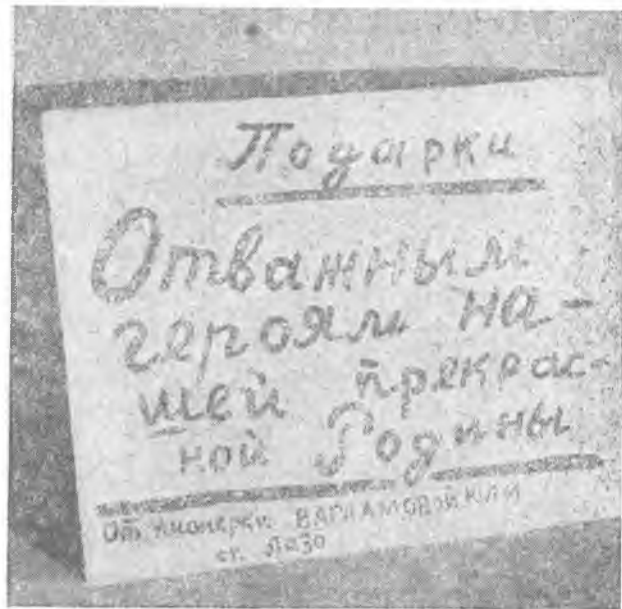 Подарки
Отважным
героям на-
шей прекрас-
ной Родины
От пионерки
ст. Лазо